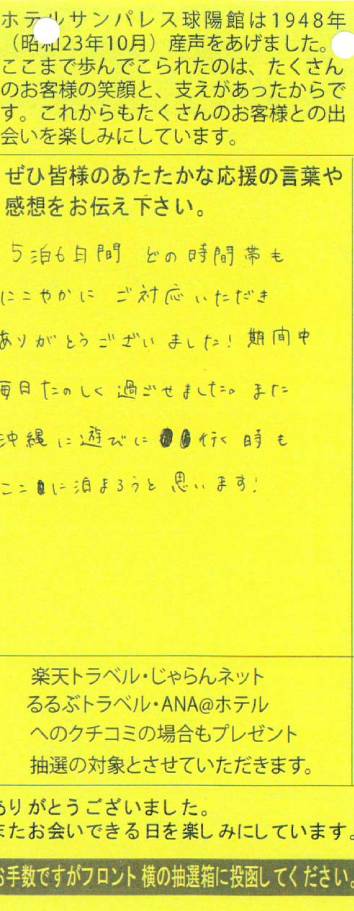 ホテルサンパレス球陽館は1948年
（昭和23年10月）産声をあげました。
ここまで歩んでこられたのは、たくさん
のお客様の笑顔と、支えがあったからで
す。これからもたくさんのお客様との出
会いを楽しみにしています。
ぜひ皆様のあたたかな応援の言葉や
感想をお伝え下さい。
5泊6日間 どの時間帯も
にこやかに ご対応いただき
ありがとうございました! 期間中
毎日たのしく過ごせました。また
沖縄に遊びに行く時も
ここに泊まろうと思います!
楽天トラベル・じゃらんネット
るるぶトラベル・ANA@ホテル
へのクチコミの場合もプレゼント
抽選の対象とさせていただきます。
ありがとうございました。
またお会いできる日を楽しみにしています。
お手数ですがフロント横の抽選箱に投函してください。